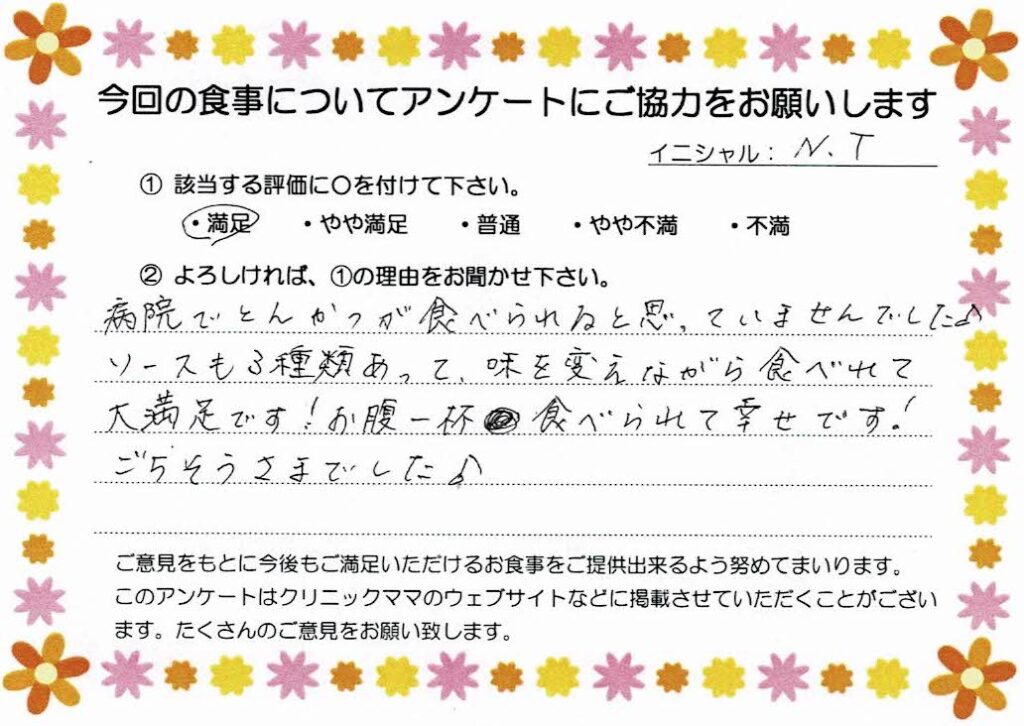 今回の食事についてアンケートにご協力をお願いします
イニシャル： N.T
① 該当する評価に〇を付けて下さい。
・満足 ・やや満足 ・普通 ・やや不満 ・不満
② よろしければ、①の理由をお聞かせ下さい。
病院でとんかつが食べられると思っていませんでした♪
ソースも3種類あって、味を変えながら食べれて
大満足です！お腹一杯食べられて幸せです！
ごちそうさまでした♪
ご意見をもとに今後もご満足いただけるお食事をご提供出来るよう努めてまいります。
このアンケートはクリニックママのウェブサイトなどに掲載させていただくことがござい
ます。たくさんのご意見をお願い致します。